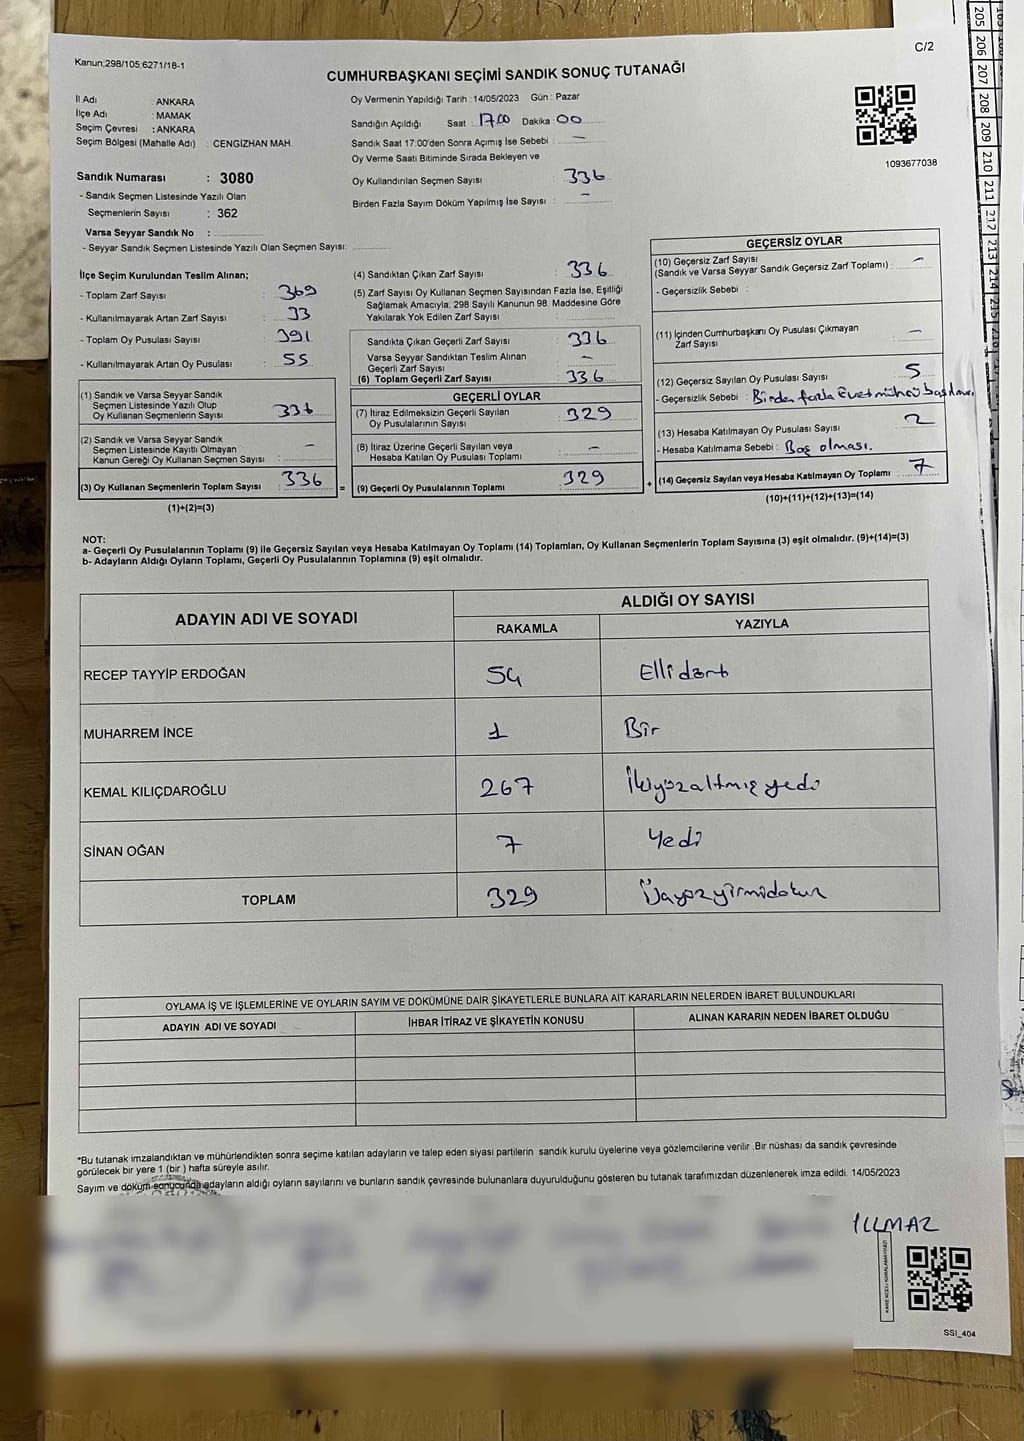 Kanun;298/105;6271/18-1
C/2
CUMHURBAŞKANI SEÇİMİ SANDIK SONUÇ TUTANAĞI
İl Adı : ANKARA
İlçe Adı : MAMAK
Seçim Çevresi : ANKARA
Seçim Bölgesi (Mahalle Adı) : CENGİZHAN MAH.
Sandık Numarası : 3080
- Sandık Seçmen Listesinde Yazılı Olan
Seçmenlerin Sayısı : 362
Varsa Seyyar Sandık No :
- Seyyar Sandık Seçmen Listesinde Yazılı Olan Seçmen Sayısı:
Oy Vermenin Yapıldığı Tarih : 14/05/2023 Gün : Pazar
Sandığın Açıldığı Saat : 17.00 Dakika : 00
Sandık Saat 17:00'den Sonra Açımış İse Sebebi : -
Oy Verme Saati Bitiminde Sırada Bekleyen ve
Oy Kullandırılan Seçmen Sayısı : 336
Birden Fazla Sayım Döküm Yapılmış İse Sayısı : -
1093677038
İlçe Seçim Kurulundan Teslim Alınan;
- Toplam Zarf Sayısı : 369
- Kullanılmayarak Artan Zarf Sayısı : 33
- Toplam Oy Pusulası Sayısı : 391
- Kullanılmayarak Artan Oy Pusulası : 55
(1) Sandık ve Varsa Seyyar Sandık
Seçmen Listesinde Yazılı Olup
Oy Kullanan Seçmenlerin Sayısı : 336
(2) Sandık ve Varsa Seyyar Sandık
Seçmen Listesinde Kayıtlı Olmayan
Kanun Gereği Oy Kullanan Seçmen Sayısı : -
(3) Oy Kullanan Seçmenlerin Toplam Sayısı : 336
(1)+(2)=(3)
(4) Sandıktan Çıkan Zarf Sayısı : 336
(5) Zarf Sayısı Oy Kullanan Seçmen Sayısından Fazla İse, Eşitliği
Sağlamak Amacıyla, 298 Sayılı Kanunun 98. Maddesine Göre
Yakılarak Yok Edilen Zarf Sayısı :
Sandıkta Çıkan Geçerli Zarf Sayısı : 336
Varsa Seyyar Sandıktan Teslim Alınan
Geçerli Zarf Sayısı : -
(6) Toplam Geçerli Zarf Sayısı : 336
GEÇERLİ OYLAR
(7) İtiraz Edilmeksizin Geçerli Sayılan
Oy Pusulalarının Sayısı : 329
(8) İtiraz Üzerine Geçerli Sayılan veya
Hesaba Katılan Oy Pusulası Toplamı : -
= (9) Geçerli Oy Pusulalarının Toplamı : 329
GEÇERSİZ OYLAR
(10) Geçersiz Zarf Sayısı
(Sandık ve Varsa Seyyar Sandık Geçersiz Zarf Toplamı) : -
- Geçersizlik Sebebi :
(11) İçinden Cumhurbaşkanı Oy Pusulası Çıkmayan
Zarf Sayısı : -
(12) Geçersiz Sayılan Oy Pusulası Sayısı : 5
- Geçersizlik Sebebi : Birden fazla Evet mührü basılması
(13) Hesaba Katılmayan Oy Pusulası Sayısı : 2
- Hesaba Katılmama Sebebi : Boş olması.
+ (14) Geçersiz Sayılan veya Hesaba Katılmayan Oy Toplamı : 7
(10)+(11)+(12)+(13)=(14)
NOT:
a- Geçerli Oy Pusulalarının Toplamı (9) ile Geçersiz Sayılan veya Hesaba Katılmayan Oy Toplamı (14) Toplamları, Oy Kullanan Seçmenlerin Toplam Sayısına (3) eşit olmalıdır. (9)+(14)=(3)
b- Adayların Aldığı Oyların Toplamı, Geçerli Oy Pusulalarının Toplamına (9) eşit olmalıdır.
ADAYIN ADI VE SOYADI
ALDIĞI OY SAYISI
RAKAMLA YAZIYLA
RECEP TAYYİP ERDOĞAN 54 Ellidört
MUHARREM İNCE 1 Bir
KEMAL KILIÇDAROĞLU 267 İkiyüzaltmış yedi
SİNAN OĞAN 7 Yedi
TOPLAM 329 Üçyüzyirmidokuz
OYLAMA İŞ VE İŞLEMLERİNE VE OYLARIN SAYIM VE DÖKÜMÜNE DAİR ŞİKAYETLERLE BUNLARA AİT KARARLARIN NELERDEN İBARET BULUNDUKLARI
ADAYIN ADI VE SOYADI İHBAR İTİRAZ VE ŞİKAYETİN KONUSU ALINAN KARARIN NEDEN İBARET OLDUĞU
*Bu tutanak imzalandıktan ve mühürlendikten sonra seçime katılan adayların ve talep eden siyasi partilerin sandık kurulu üyelerine veya gözlemcilerine verilir. Bir nüshası da sandık çevresinde
görülecek bir yere 1 (bir ) hafta süreyle asılır.
Sayım ve döküm sonucunda adayların aldığı oyların sayılarını ve bunların sandık çevresinde bulunanlara duyurulduğunu gösteren bu tutanak tarafımızdan düzenlenerek imza edildi. 14/05/2023
SSI_404
205
206
207
208
209
210
211
212
213
214